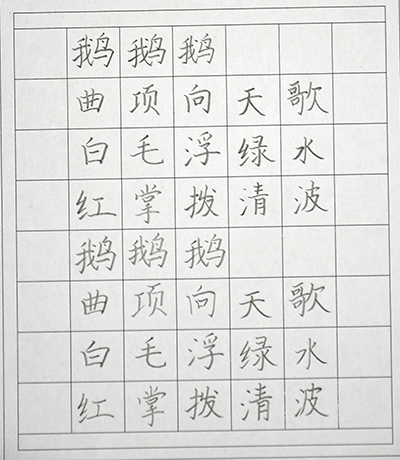 鹅鹅鹅
曲项向天歌
白毛浮绿水
红掌拨清波
鹅鹅鹅
曲项向天歌
白毛浮绿水
红掌拨清波